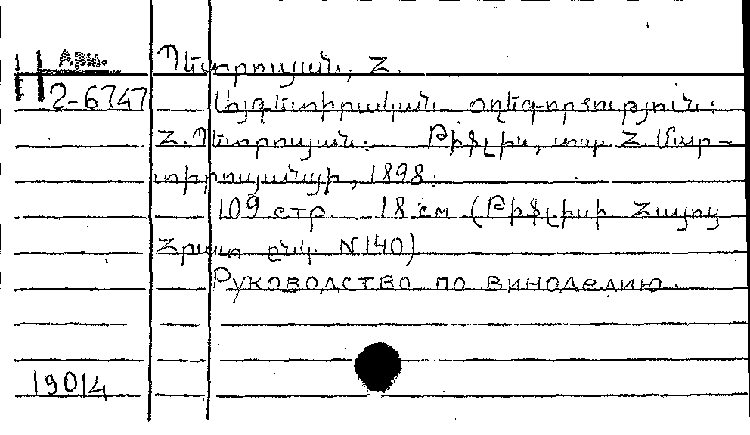 Арм.
Պետրոսյան, Հ.
2-6747
Այգետիրական օղեգործություն:
Հ. Պետրոսյան: Թիֆլիս, տպ. Հ. Մար-
տիրոսյանցի, 1898.
109 стр 18 см (Թիֆլիսի Հայոց
Հրատ. ընկ. N 140)
Руководство по виноделию.
19014